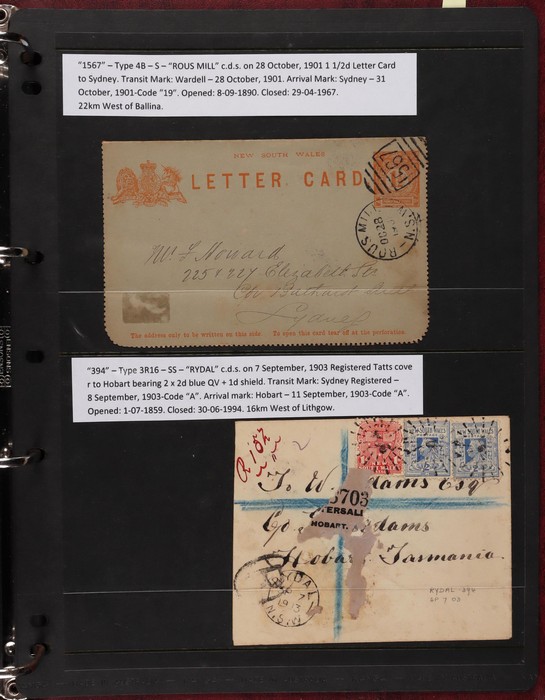 "1567" – Type 4B – S – "ROUS MILL" c.d.s. on 28 October, 1901 1 1/2d Letter Card
to Sydney. Transit Mark: Wardell – 28 October, 1901. Arrival Mark: Sydney – 31
October, 1901-Code "19". Opened: 8-09-1890. Closed: 29-04-1967.
22km West of Ballina.
NEW SOUTH WALES
LETTER CARD
ROUS MILL N.S.W
OC 28
Mr Howard
225 & 227 Elizabeth St
Sydney
The address only to be written on this side. To open this card tear off at the perforation.
"394" – Type 3R16 – SS – "RYDAL" c.d.s. on 7 September, 1903 Registered Tatts cove
r to Hobart bearing 2 x 2d blue QV + 1d shield. Transit Mark: Sydney Registered –
8 September, 1903-Code "A". Arrival mark: Hobart – 11 September, 1903-Code "A".
Opened: 1-07-1859. Closed: 30-06-1994. 16km West of Lithgow.
R 152
To W. Adams Esq
3703
TERSALL
HOBART.
C/o dams
Hobart Tasmania
RYDAL 394
SP 7 03
RYDAL
N.S.W